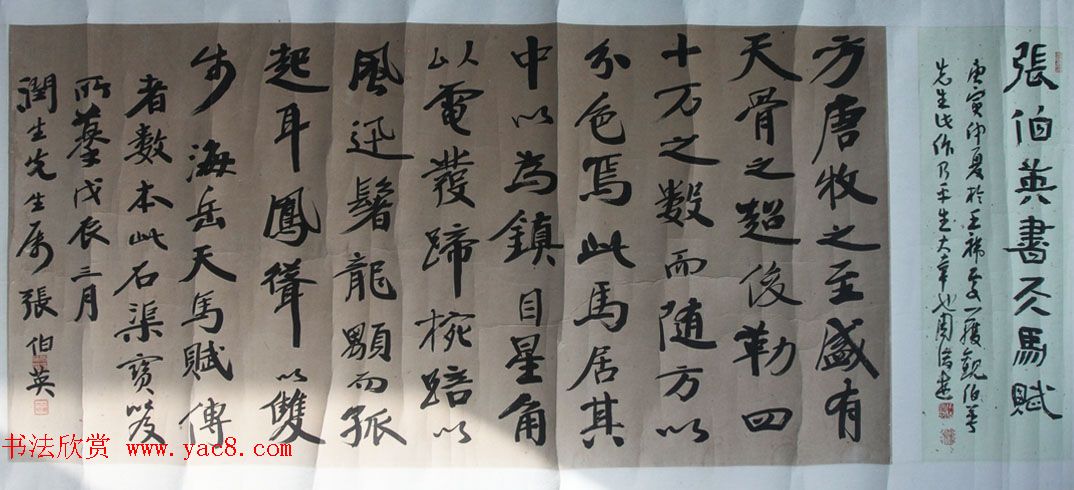 張伯英書天馬賦
庚寅仲夏於王祿一獲觀伯英
先生此作乃平生大幸也周
方唐牧之至盛有
天骨之超俊勒四
十万之數而随方以
分色焉此馬居其
中以為鎮目星角
以電發蹄椀踣以
風迅鬐龍顒而孤
起耳鳳聳以雙
步海岳天馬賦傳
者數本此石渠寶笈
所摹戊辰三月
潤生先生属張伯英
书法欣赏 www.yac8.com